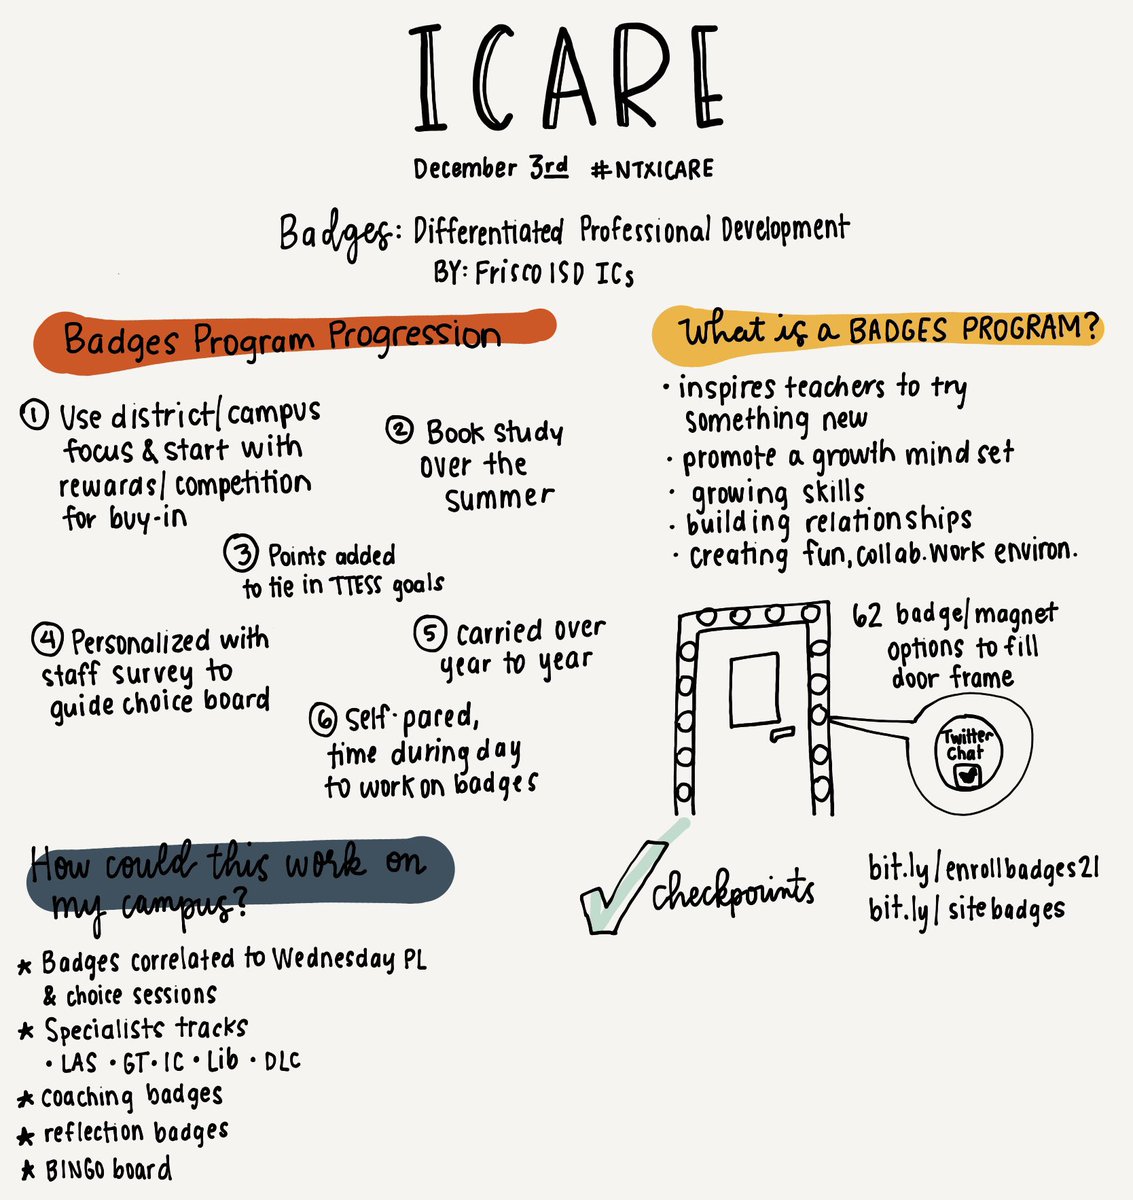 ICARE
December 3rd #NTXICARE
Badges: Differentiated Professional Development
BY: Frisco ISD ICs
Badges Program Progression
① Use district/campus
focus & start with
rewards/competition
for buy-in
② Book study
over the
summer
③ Points added
to tie in TTESS goals
④ Personalized with
staff survey to
guide choice board
⑤ carried over
year to year
⑥ Self-paced,
time during day
to work on badges
What is a BADGES PROGRAM?
· inspires teachers to try
something new
· promote a growth mind set
· growing skills
· building relationships
· creating fun, collab. work environ.
62 badge/magnet
options to fill
door frame
Twitter
Chat
checkpoints
bit.ly/enrollbadges21
bit.ly/sitebadges
How could this work on
my campus?
★ Badges correlated to Wednesday PL
& choice sessions
★ Specialists tracks
· LAS · GT · IC · Lib · DLC
★ coaching badges
★ reflection badges
★ BINGO board